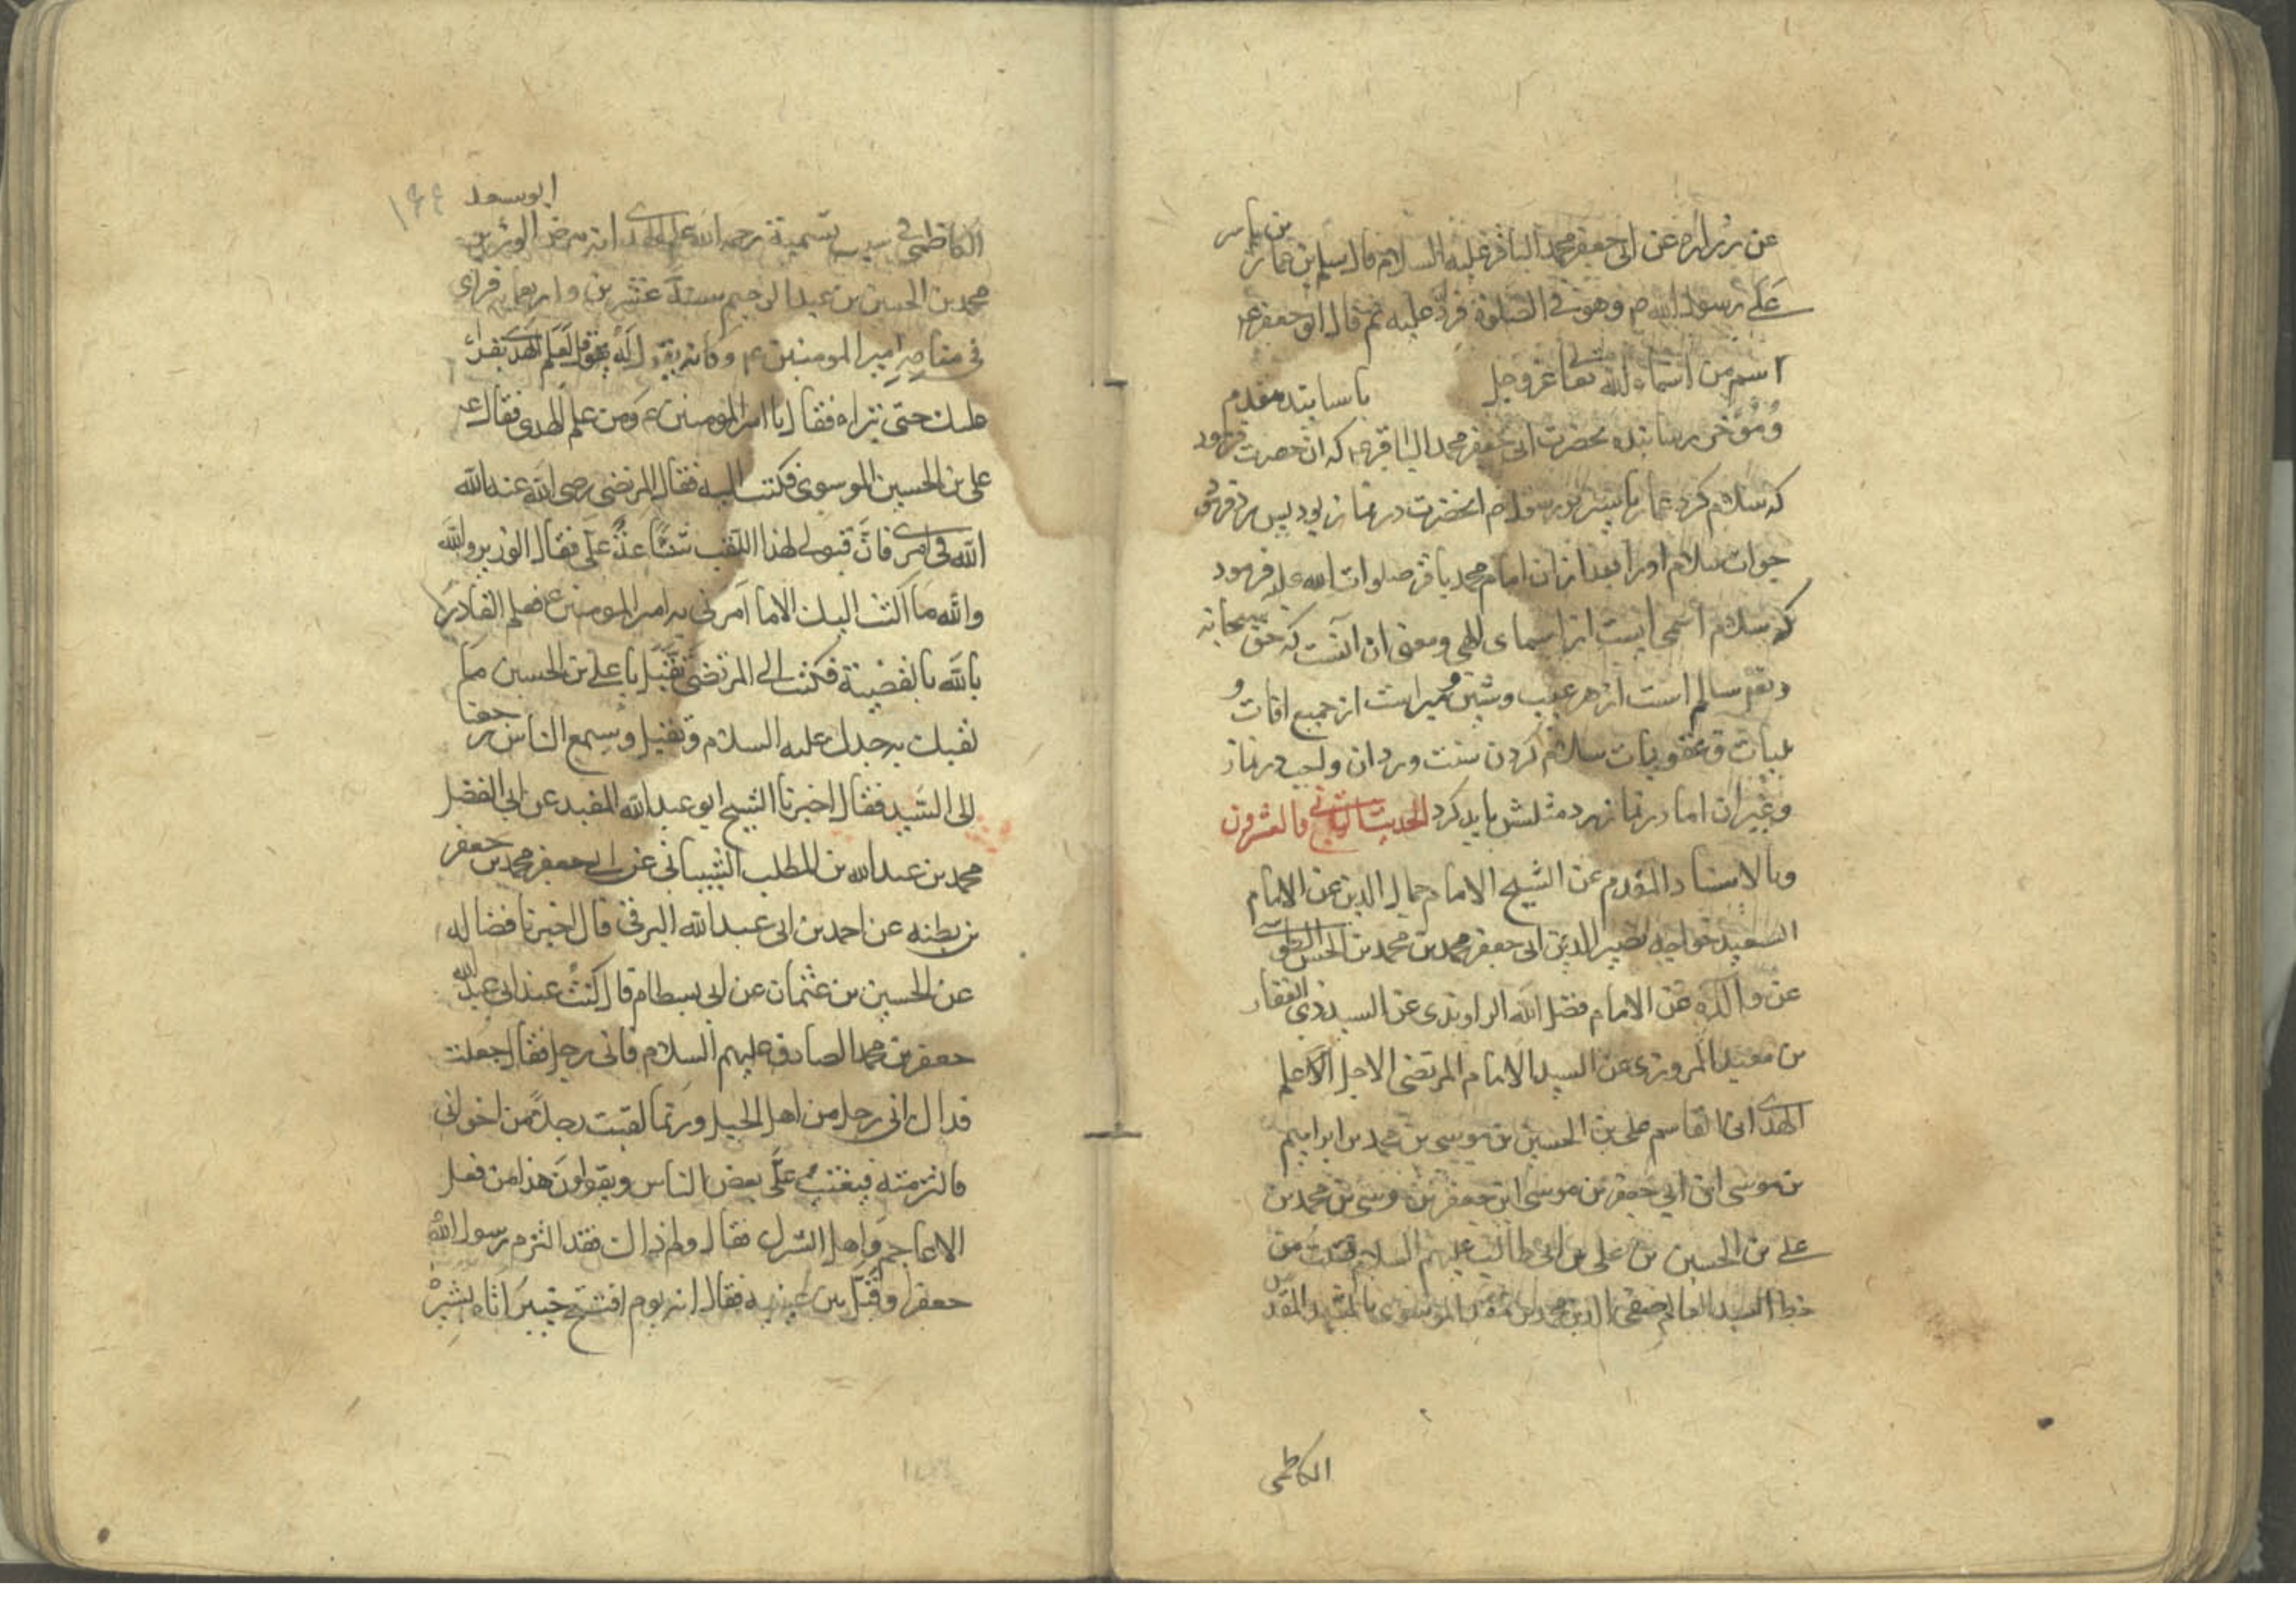 عن زراره عن ابی جعفر محمد الباقر علیه السلام قال سلم بن عمار بن یاسر
علی رسول الله ص وهو فی الصلوة فرد علیه ثم قال ابو جعفر ع
اسم من اسماء الله تعا عز وجل باسانید مقدم
و مؤخر رساننده بحضرت ابی جعفر محمد الباقر ع که ان حضرت فرمود
که سلام کرد عمار یاسر بر رسول ص انحضرت در نماز بود پس رد فرمود
جواب سلام اورا بعد از ان امام محمد باقر صلوات الله علیه فرمود
که سلام اسمی است از اسمای الهی و معنی ان انست که حق سبحانه
و تعم سالم است از هر عیب و شین و مبراست از جمیع افات و
بلیات و عقوبات سلام کردن سنت ورد ان واجب در نماز
و غیر ان اما در نماز رد مثلش باید کرد الحدیث الثانی والعشرون
وبالاسناد المقدم عن الشیخ الامام جمال الدین عن الامام
السعید خواجه نصیر الدین ابی جعفر محمد بن محمد بن الحسن الطوسی
عن والده عن الامام فضل الله الراوندی عن السید ذی الفقار
بن معبد المروزی عن السید الامام المرتضی الاجل الاعلم
الهدی ابی القاسم علی بن الحسین بن موسی بن محمد بن ابراهیم
بن موسی ابن ابی جعفر بن موسی ابن جعفر بن موسی بن محمد بن
علی بن الحسین بن علی بن ابی طالب علیهم السلام قلت من
خط السید العالم صفی الدین محمد بن معد الموسوی بالمشهد المقدس
الکاظمی
ابو سعد ۱۶۴
الکاظمی فی سبب تسمیة رحمه الله علم الهدی انه مرض الوزیر
محمد بن الحسین بن عبد الرحیم سنة عشرین و اربعمایه فرای
فی منامه امیر المومنین ع وکانه یقول له قل لعلم الهدی یقرا
علیک حتی تبراه فقال یا امیر المومنین ع ومن علم الهدی فقال ع
علی بن الحسین الموسوی فکتب الیه فقال المرتضی رضی الله عنه الله
الله فی امری فان قبولی لهذا اللقب شناعة علی فقال الوزیر والله
والله ما اکتب الیک الا ما امرنی به امیر المومنین ع فعلم القادر
بالله بالقضیة فکتب الی المرتضی تقبل یا علی بن الحسین ما
لقبک به جدک علیه السلام وتقبل وسمع الناس
الی السید فقال اخبرنا الشیخ ابو عبد الله المفید عن ابی الفضل
محمد بن عبد الله بن المطلب الشیبانی عن ابی جعفر محمد بن جعفر
بن بطنه عن احمد بن ابی عبد الله البرقی قال اخبرنا فضاله
عن الحسین بن عثمان عن ابی بسطام قال کنت عند ابی عبد الله
جعفر بن محمد الصادق علیهم السلام فاتی رجل فقال جعلت
فداک انی رجل من اهل الجبل وربما لقیت رجلا من اخوانی
فالتزمته فیعیب علی بعض الناس ویقولون هذا من فعل
الاعاجم واهل الشرک فقال ولم ذاک فقد التزم رسول الله
جعفرا وقبل بین عینیه فقال انه یوم افتتح خیبر اتاه بشیر